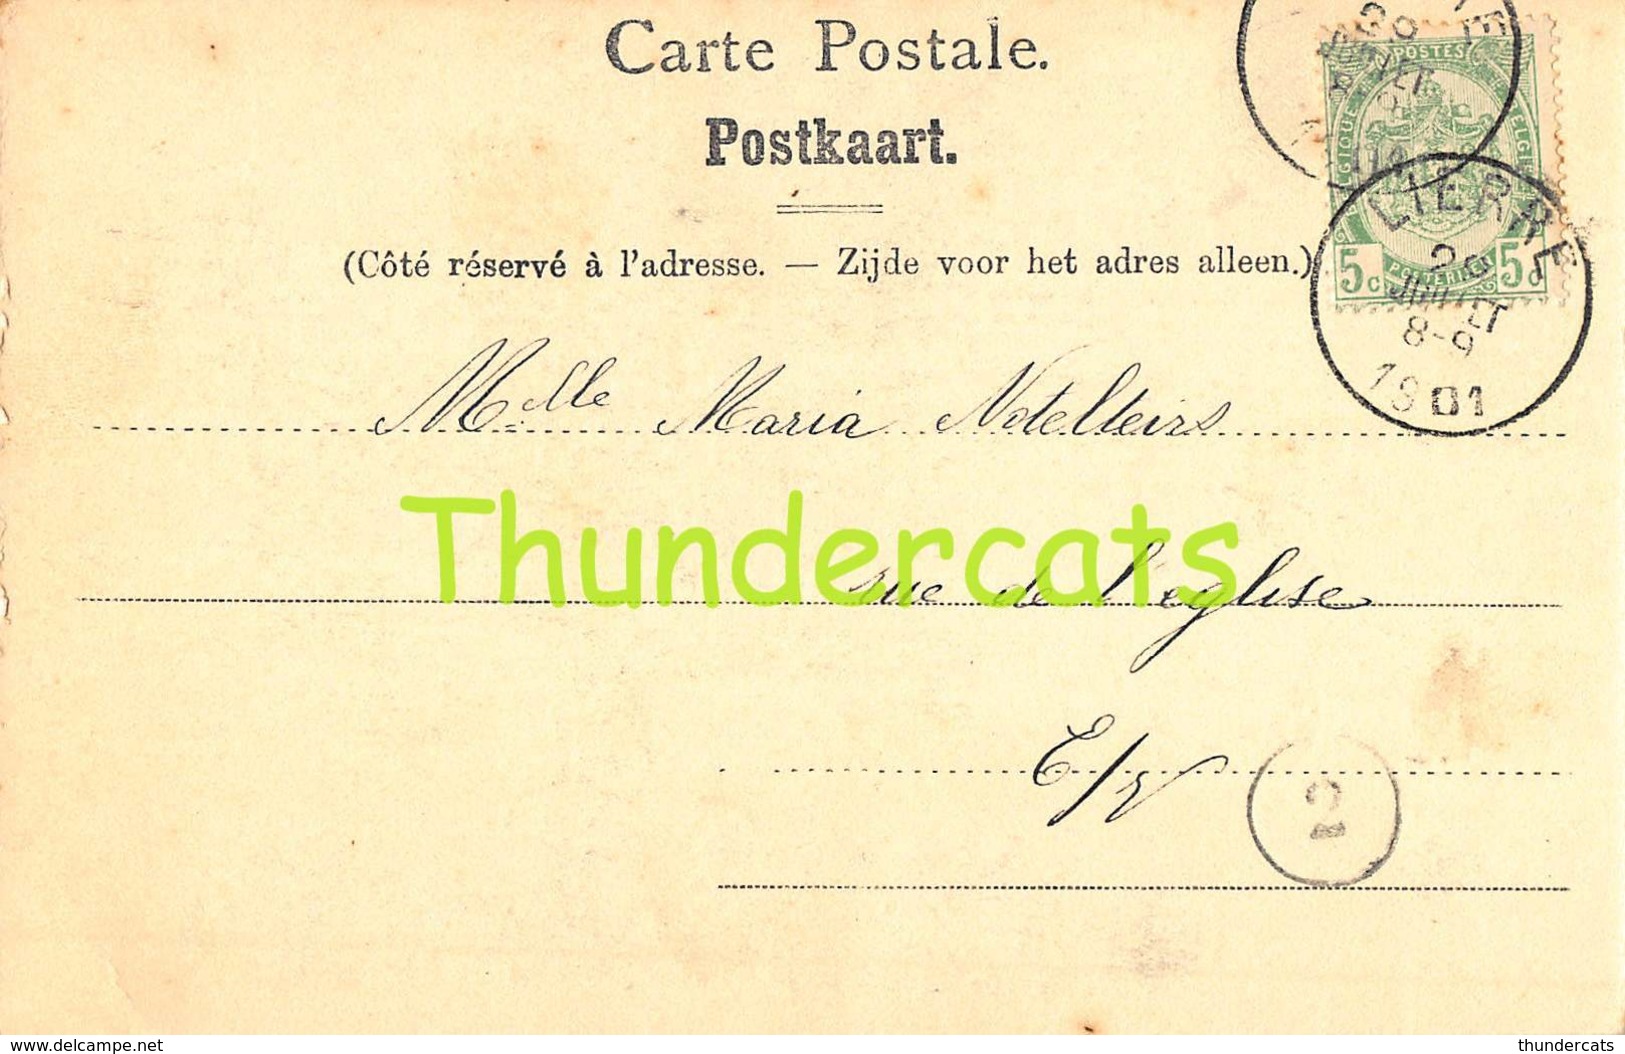 Carte Postale.
Postkaart.
(Côté réservé à l'adresse. — Zijde voor het adres alleen.)
POSTES
5c 5c
LIERRE
JUILLET
8-9
1901
Mlle Maria Notelteirs
Thundercats
rue de l'eglise
E/V
2
www.delcampe.net
thundercats